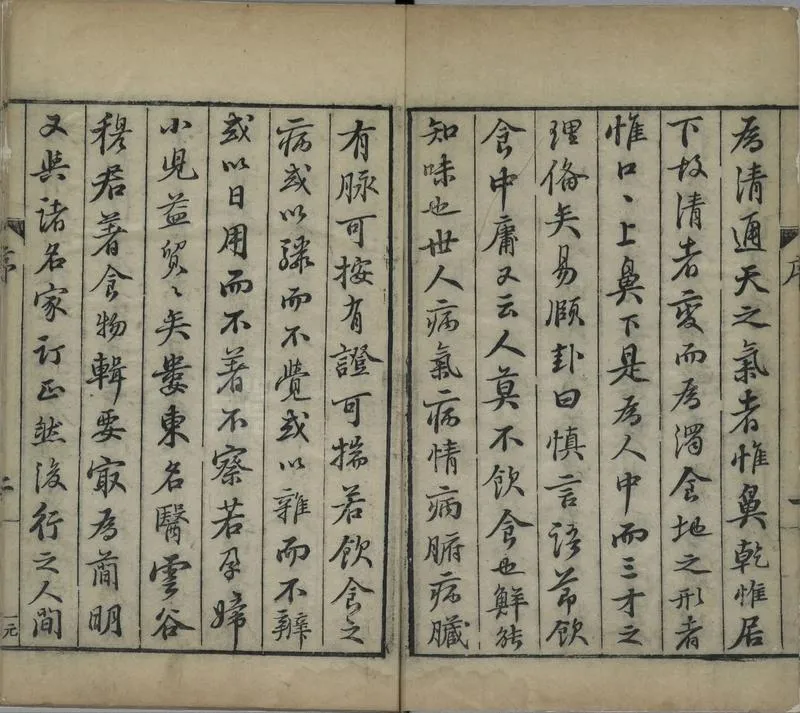 為清通天之氣者惟鼻乾惟居
下故清者變而為濁食地之形者
惟口丶上鼻下是為人中而三才之
理備矣易頤卦曰慎言語節飲
食中庸又云人莫不飲食也鮮能
知味也世人病氣病情病腑病臟
有脉可按有證可揣若飲食之
病或以驟而不覺或以雜而不辨
或以日用而不著不察若孕婦
小兒益貿丶矣婁東名醫雲谷
穆君著食物輯要冣為簡明
又與諸名家訂正然後行之人間
序
二
一元
序
一